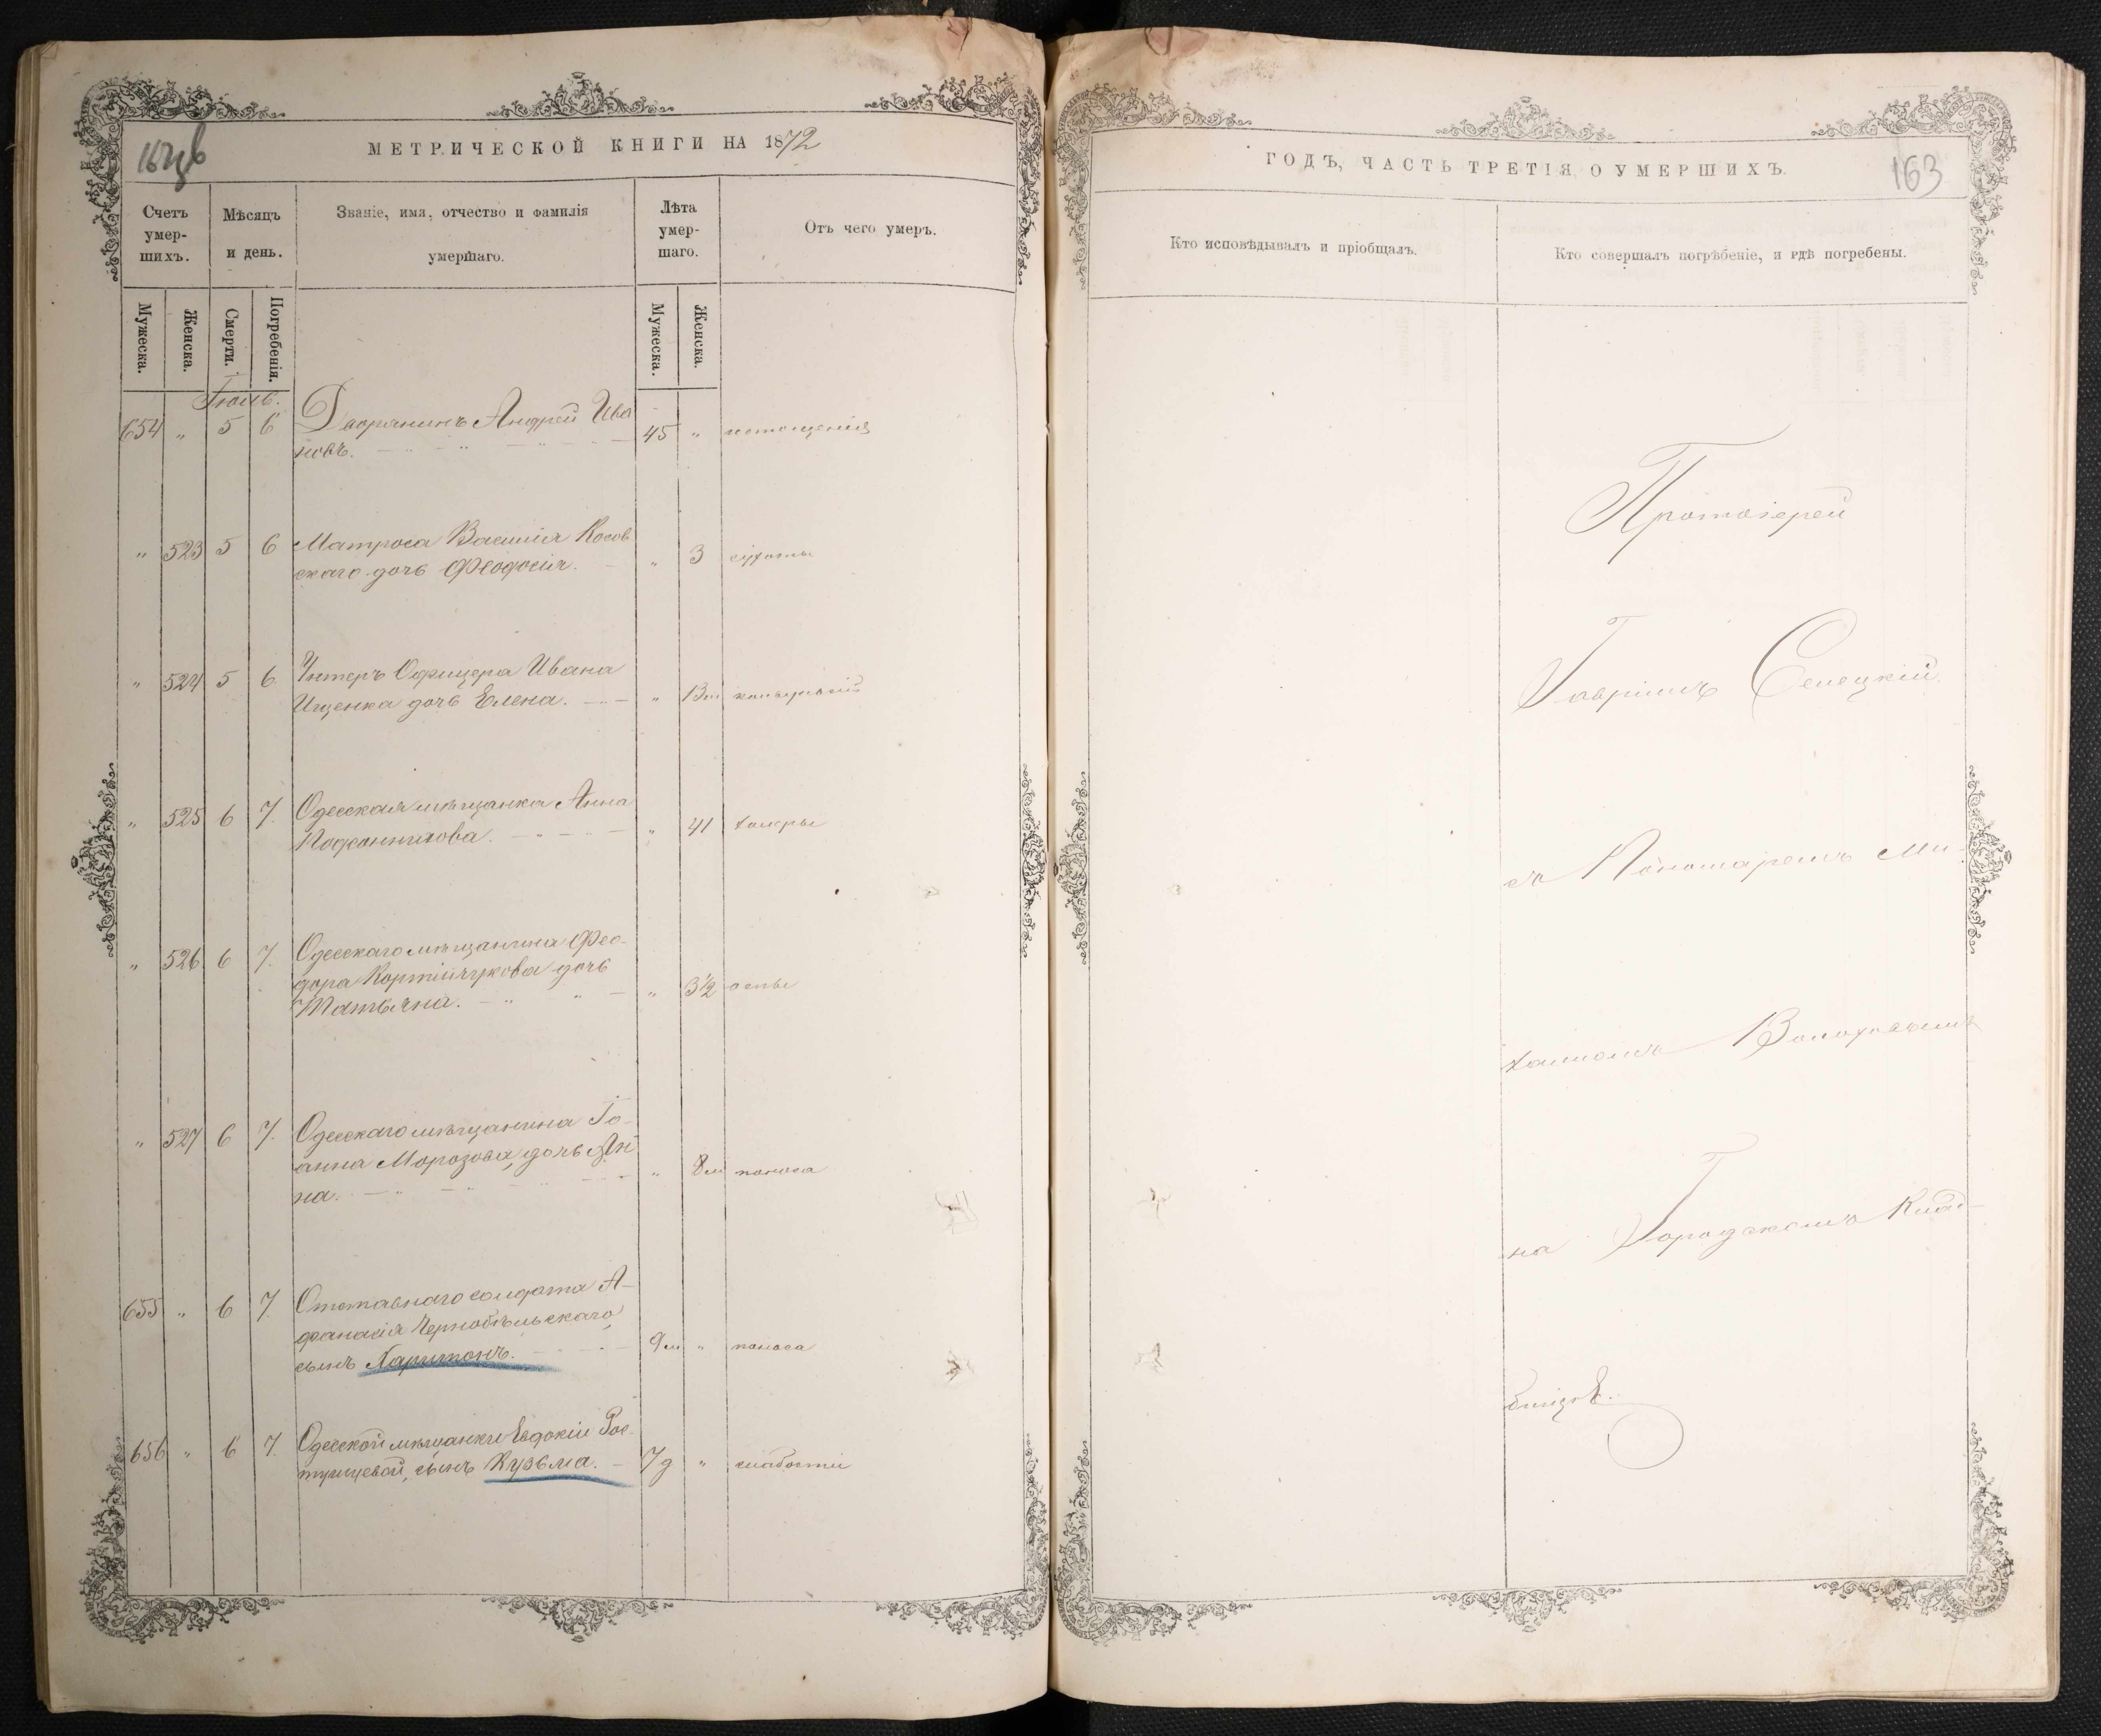 МЕТРИЧЕСКОЙ КНИГИ НА 1872
Счетъ умер-шихъ.
Мѣсяцъ и день.
Званіе, имя, отчество и фамилія умершаго.
Лѣта умер-шаго.
Отъ чего умеръ.
Мужеска.
Женска.
Смерти.
Погребенія.
Мужеска.
Женска.
Іюль.
654 „ 5 6 Дворянинъ Андрей Ива
новъ. 45 „ истощенія
„ 523 5 6 Матроса Василія Косов
скаго дочь Феодосія. „ 3 сухоты
„ 524 5 6 Унтеръ Офицера Ивана
Ищенка дочь Елена. „
„ 525 6 7. Одесская мѣщанка Анна
„ 41 холеры
„ 526 6 7. Одесскаго мѣщанина Фео-
дора дочь
Татьяна. „ 3½ оспы
„ 527 6 7. Одесскаго мѣщанина Іо-
анна Морозова, дочь Ан
на. „ 8м поноса
655 „ 6 7. Отставнаго солдата А-
фанасія Чернобыльскаго,
сынъ Харитонъ. 9м „ поноса
656 „ 6 7. Одесской мѣщанки Евдокіи Рос-
сынъ Кузьма. 7д „ слабости
ГОДЪ, ЧАСТЬ ТРЕТІЯ, О УМЕРШИХЪ.
163
Кто исповѣдывалъ и пріобщалъ.
Кто совершалъ погрѣбеніе, и гдѣ погребены.
Протоіерей
Гавріилъ Селецкій
съ Пономаремъ Ми-
хаиломъ Волоховымъ
на Городскомъ Клад-
бищѣ.